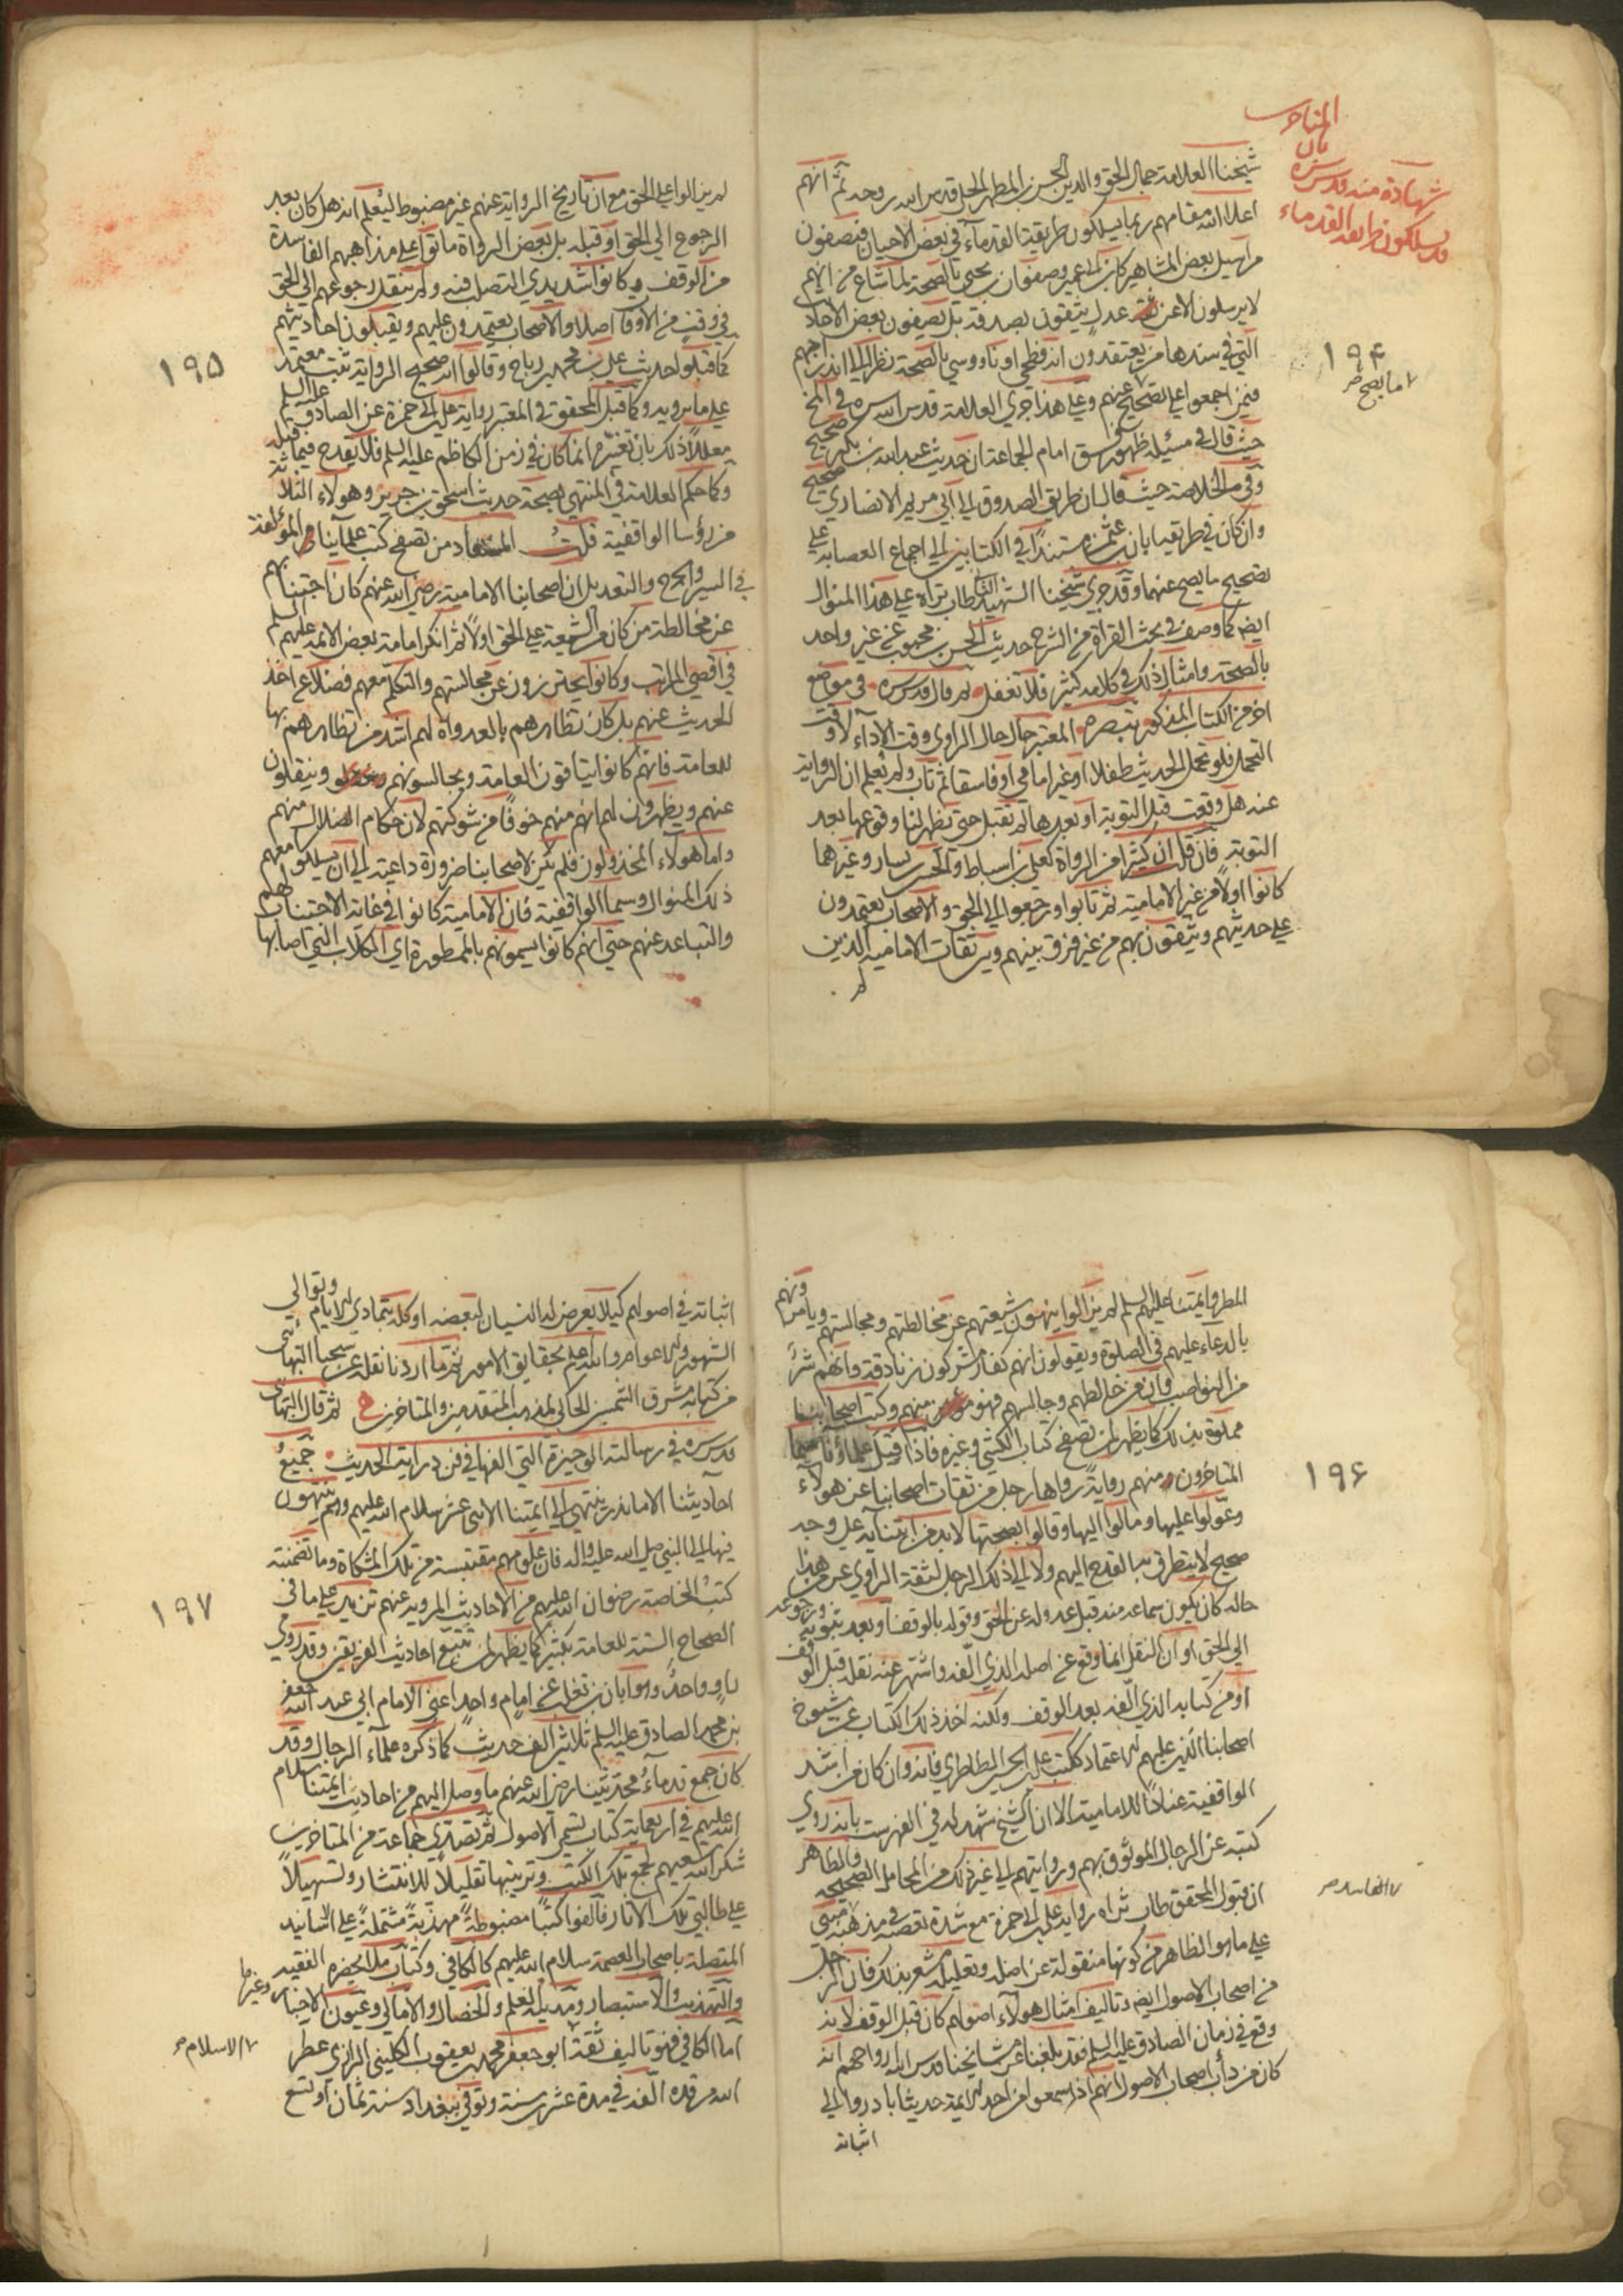 المتاخرين
بان
شهادة منه قدس سره
قد يسلكون طريقة القدماء
شيخنا العلامة جمال الحق والدين الحسن بن المطهر الحلي قدس الله روحه ثم انهم
اعلا الله مقامهم ربما يسلكون طريقة القدمآء في بعض الاحيان فيصفون
مراسيل بعض المشاهير كابن ابي عمير وصفوان بن يحيى بالصحة لما شاع من انهم
لا يرسلون الا عن ثقة عدل يثقون بصدقه بل يصفون بعض الاحاديث
التي في سندها من يعتقدون انه فطحي او ناووسي بالصحة نظرا الى اندراجهم
فيمن اجمعوا على تصحيح عنهم وعلى هذا جرى العلامة قدس الله سره في المخ
حيث قال في مسئلة ظهور فسق امام الجماعة ان حديث عبد الله بن بكير صحيح
وفي الخلاصة حيث قال ان طريق الصدوق الى ابي مريم الانصاري صحيح
وان كان في طريقه ابان بن عثمن مستندا في الكتابين الى اجماع العصابة على
تصحيح ما يصح عنهما وقد جرى شيخنا الشهيد الثاني طاب ثراه على هذا المنوال
ايضا كما وصف في بحث القراة من الشرح حديث الحسن بن محبوب عن غير واحد
بالصحة وامثال ذلك في كلامه كثير فلا تغفل ثم قال قدس سره في موضع
اخر من الكتاب المذكور تبصره المعتبر حال حال الراوي وقت الآداء لا وقت
التحمل فلو تحمل الحديث طفلا او غير امامي او فاسقا ثم تاب ولم يعلم ان الرواية
عنه هل وقعت قبل التوبة او بعدها لم تقبل حتى يظهر لنا وقوعها بعد
التوبة فان قلت ان كثيرا من الرواة كعلي بن اسباط والحسين بن يسار وغيرهما
كانوا اولا من غير الامامية ثم تابوا ورجعوا الى الحق والاصحاب يعتمدون
على حديثهم ويثقون بهم من غير فرق بينهم وبين ثقات الامامية الذين
لم
١٩۴
ما يصح
لم يزالوا على الحق مع ان تاريخ الرواية عنهم غير مضبوط ليعلم انه هل كان بعد
الرجوع الى الحق او قبله بل بعض الرواة ماتوا على مذاهبهم الفاسدة
من الوقف وكانوا شديدي التصلب فيه ولم ينقل رجوعهم الى الحق
في وقت من الاوقات اصلا والاصحاب يعتمدون عليهم ويقبلون احاديثهم
كما قبلوا حديث علي بن محمد بن رباح وقالوا انه صحيح الرواية ثبت معتمد
على ما يرويه وكما قبل المحقق في المعتبر رواية علي بن ابي حمزة عن الصادق عليه السلم
معللا ذلك بان تغيره انما كان في زمن الكاظم عليه السلم فلا يقدح فيما قبله
وكما حكم العلامة في المنتهى بصحة حديث اسحق بن جرير وهولاء الثلاثة
من رؤسا الواقفية قلت المستفاد من تصفح كتب علمآئنا المؤلفة
في السير والجرح والتعديل ان اصحابنا الامامية رضي الله عنهم كان اجتنابهم
عن مخالطة من كان من الشيعة على الحق اولا ثم انكر امامة بعض الائمة عليهم السلم
في اقصى المراتب وكانوا يحترزون عن مجالستهم والتكلم معهم فضلا عن اخذ
الحديث عنهم بل كان تظاهرهم بالعداوة لهم اشد من تظاهرهم بها
للعامة فانهم كانوا يتاقون العامة ويجالسونهم وينقلون
عنهم ويظهرون لهم انهم منهم خوفا من شوكتهم لان حكام الضلال منهم
واما هولآء المخذولون فلم يكن لاصحابنا ضرورة داعية الى ان يسلكوا معهم
ذلك المنوال وسيما الواقفية فان الامامية كانوا في غاية الاجتناب لهم
والتباعد عنهم حتى انهم كانوا يسمونهم بالممطورة اي الكلاب التي اصابها
١٩۵
المطر وائمتنا عليهم السلم لم يزالوا ينهون شيعتهم عن مخالطتهم ومجالستهم ويامرونهم
بالدعاء عليهم في الصلوة ويقولون انهم كفار مشركون زنادقة وانهم شر
من النواصب وان من خالطهم وجالسهم فهو منهم وكتب اصحابنا
مملوة بذلك كما يظهر لمن تصفح كتاب الكشي وغيره فاذا قبل علماؤنا سيما
المتاخرون منهم رواية رواها رجل من ثقات اصحابنا عن هولآء
وعولوا عليها ومالوا اليها وقالوا بصحتها لابد من ابتنائه على وجه
صحيح لا يتطرق به القدح اليهم ولا الى ذلك الرجل الثقة الراوي عن من هذا
حاله كان يكون سماعه منه قبل عدوله عن الحق وقوله بالوقف او بعد توبته ورجوعه
الى الحق او ان النقل انما وقع عن اصله الذي الفه واشتهر عنه نقله قبل الوقف
او من كتابه الذي الفه بعد الوقف ولكنه اخذ ذلك الكتاب عن شيوخ
اصحابنا الذين عليهم الاعتماد ككتب علي بن الحسن الطاطري فانه وان كان من اشد
الواقفية عنادا للامامية الا ان الشيخ شهد له في الفهرست بانه روى
كتبه عن الرجال الموثوق بهم وبروايتهم الى غير ذلك من المحامل الصحيحة والظاهر
ان قبول المحقق طاب ثراه رواية علي بن ابي حمزة مع شدة تعصبه في مذهبه مبني
على ما هو الظاهر من كونها منقولة عن اصله وتعليله مشعر بذلك فان الرجل
من اصحاب الاصول ايضا وتاليف امثال هولآء اصولهم كان قبل الوقف لانه
وقع في زمان الصادق عليه السلم فقد بلغنا عن مشايخنا قدس الله ارواحهم انه
كان من دأب اصحاب الاصول انهم اذا سمعوا من احد الائمة حديثا بادروا الى
اثباته
١٩۶
الفاسد
اثباته في اصولهم كيلا يعرض له النسيان لبعضه او كله بتمادي الايام وتوالي
الشهور والاعوام والله اعلم بحقايق الامور ثم ما اردنا نقله عن شيخنا البهائي
من كتابه مشرق الشمسين الحاكي لمذهب المتقدمين والمتاخرين ثم قال البهائي
قدس سره في رسالته الوجيزة التي الفها في فن دراية الحديث جميع
احاديثنا الا ما ندر ينتهي الى ائمتنا الاثنى عشر سلام الله عليهم وهم ينتهون
فيها الى النبي صلى الله عليه واله فان علومهم مقتبسة من تلك المشكاة وما تضمنته
كتب الخاصة رضوان الله عليهم من الاحاديث المروية عنهم تزيد على ما في
الصحاح الستة للعامة بكثير كما يظهر لمن تتبع احاديث الفريقين وقد روى
راو واحد وهو ابان بن تغلب عن امام واحد اعني الامام ابي عبد الله جعفر
بن محمد الصادق عليه السلم ثلاثين الف حديث كما ذكره علمآء الرجال وقد
كان جمع قدمآء محدثينا رضي الله عنهم ما وصل اليهم من احاديث ائمتنا سلام
الله عليهم في اربعماية كتاب تسمى الاصول ثم تصدى جماعة من المتاخرين
شكر الله سعيهم لجمع تلك الكتب وترتيبها تقليلا للانتشار وتسهيلا
على طالبي تلك الآثار فالفوا كتبا مضبوطة مهذبة مشتملة على الاسانيد
المتصلة باصحاب العصمة سلام الله عليهم كالكافي وكتاب من لا يحضره الفقيه
والتهذيب والاستبصار ومدينة العلم والخصال والامالي وعيون الاخبار وغيرها
اما الكافي فهو تاليف ثقة ابو جعفر محمد بن يعقوب الكليني الرازي عطر
الله مرقده الفه في مدة عشرين سنة وتوفي ببغداد سنة ثمان او تسع
١٩٧
الاسلام